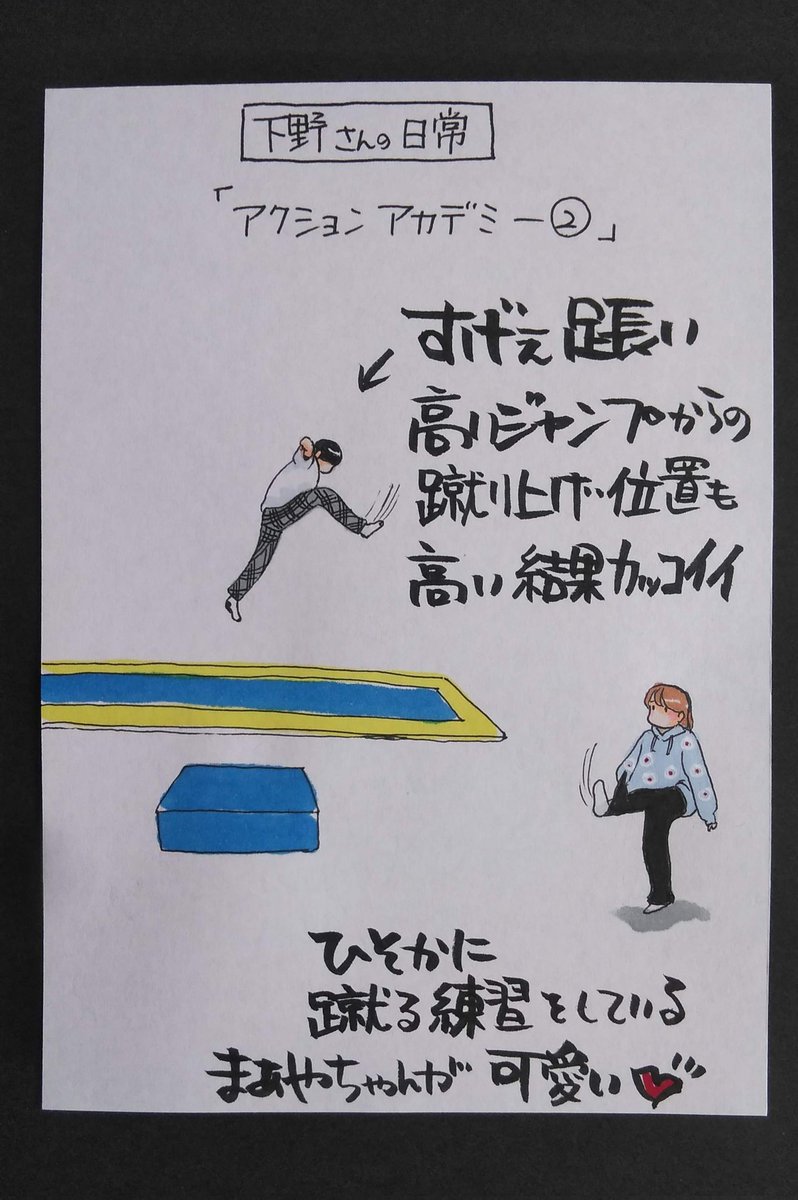 下野さんの日常
「アクション アカデミー②」
すげぇ 足長い
高いジャンプからの
蹴り上げ位置も
高い 結果カッコイイ
ひそかに
蹴る練習をしている
まあやちゃんが 可愛い